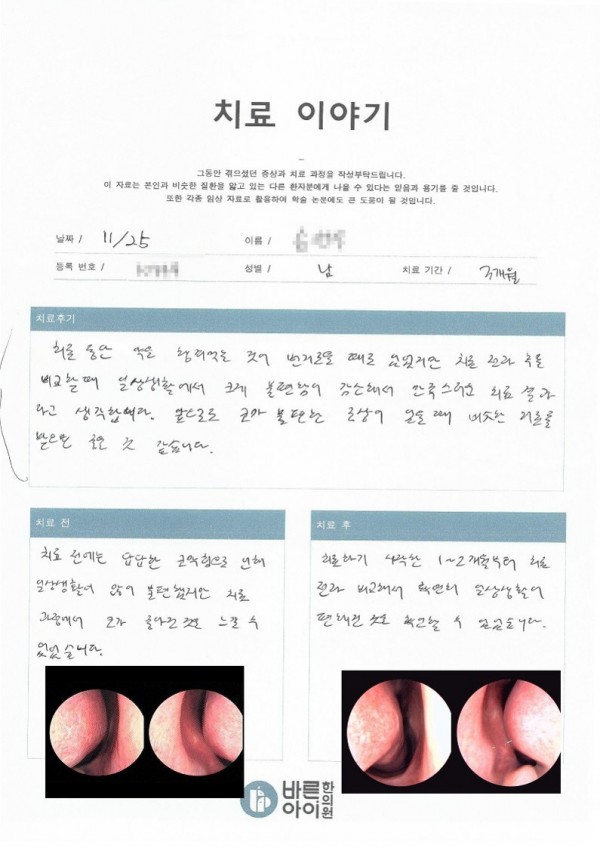 치료 이야기
~
그동안 겪으셨던 증상과 치료 과정을 작성부탁드립니다.
이 자료는 본인과 비슷한 질환을 앓고 있는 다른 환자분에게 나을 수 있다는 믿음과 용기를 줄 것입니다.
또한 각종 임상 자료로 활용하여 학술 논문에도 큰 도움이 될 것입니다.
날짜 / 11/25 이름 /
등록 번호 / 성별 / 남 치료 기간 / 3개월
치료후기
치료 동안 약을 챙겨먹는 것이 번거로울 때도 있었지만 치료 전과 후를
비교할 때 일상생활에서 크게 불편함이 감소해서 만족스러운 치료 결과
라고 생각합니다. 앞으로도 코가 불편한 증상이 있을 때 비슷한 치료를
받으면 좋을 것 같습니다.
치료 전
치료 전에는 답답한 코막힘으로 인해
일상생활이 많이 불편했지만 치료
과정에서 코가 좋아진 것을 느낄 수
있었습니다.
치료 후
치료하기 시작한 1~2개월부터 치료
전과 비교해서 확연히 일상생활이
편해진 것을 확인할 수 있었습니다.
바른
아이
한의원